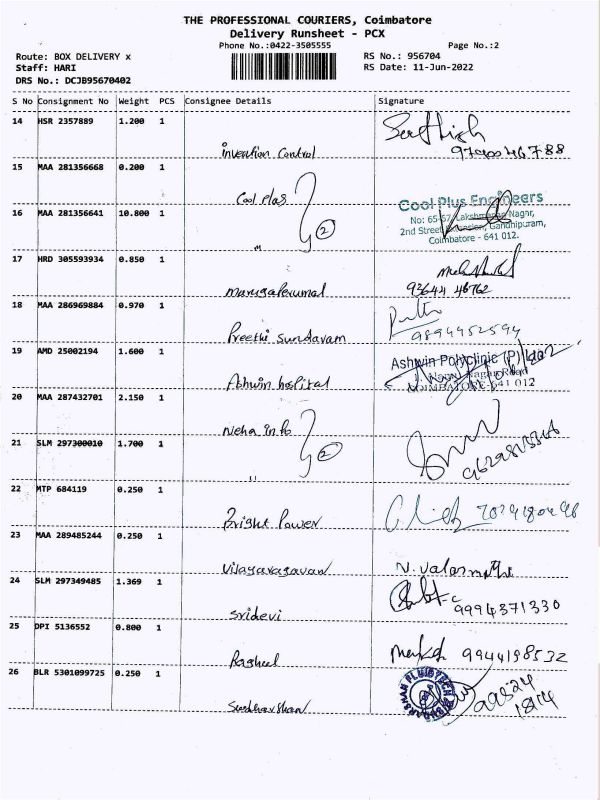 THE PROFESSIONAL COURIERS, Coimbatore
Delivery Runsheet - PCX
Phone No.:0422-3505555
Page No.:2
Route: BOX DELIVERY x
RS No.: 956704
Staff: HARI
RS Date: 11-Jun-2022
DRS No.: DCJB95670402
S No Consignment No Weight PCS Consignee Details Signature
14 HSR 2357889 1.200 1
invention control
15 MAA 281356668 0.200 1
Cool plas
Cool Plus Engineers
16 MAA 281356641 10.800 1
2
No: 65-67, Lakshmanan Nagnr,
2nd Street Gandhipuram,
Coimbatore - 641 012.
17 HRD 305593934 0.850 1
murugaperumal 93644 46762
18 MAA 286969884 0.970 1
Preethi sundaram 9894452594
19 AMD 25002194 1.600 1
Ashwin Polyclinic (P)
Ashwin hospital COIMBATORE-641 012
20 MAA 287432701 2.150 1
Neha info
21 SLM 297300010 1.700 1
2
22 MTP 684119 0.250 1
Bright Power
23 MAA 289485244 0.250 1
Vijayaragavan
24 SLM 297349485 1.369 1
sridevi 9994371330
25 DPI 5136552 0.800 1
9944198532
26 BLR 5301099725 0.250 1